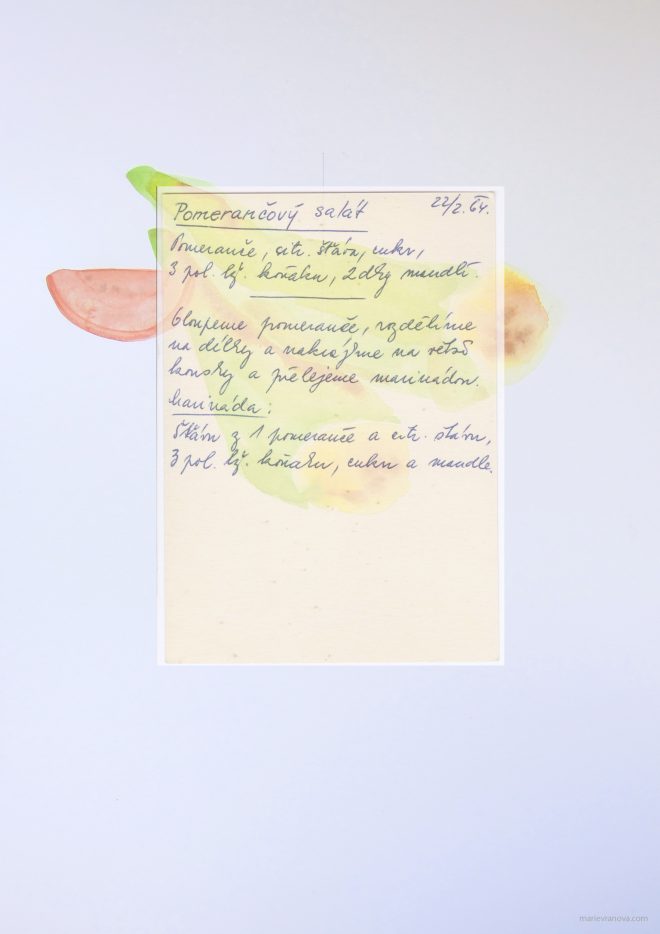 Pomerančový salát 22/2. 64.
Pomeranče, citr. šťáva, cukr,
3 pol. lž. koňaku, 2 dkg mandlí.
Oloupeme pomeranče, rozdělíme
na dílky a nakrájíme na větší
kousky a přelejeme marinádou.
Marináda:
Šťáva z 1 pomeranče a citr. šťávu,
3 pol. lž. koňaku, cukr a mandle.
marievranova.com